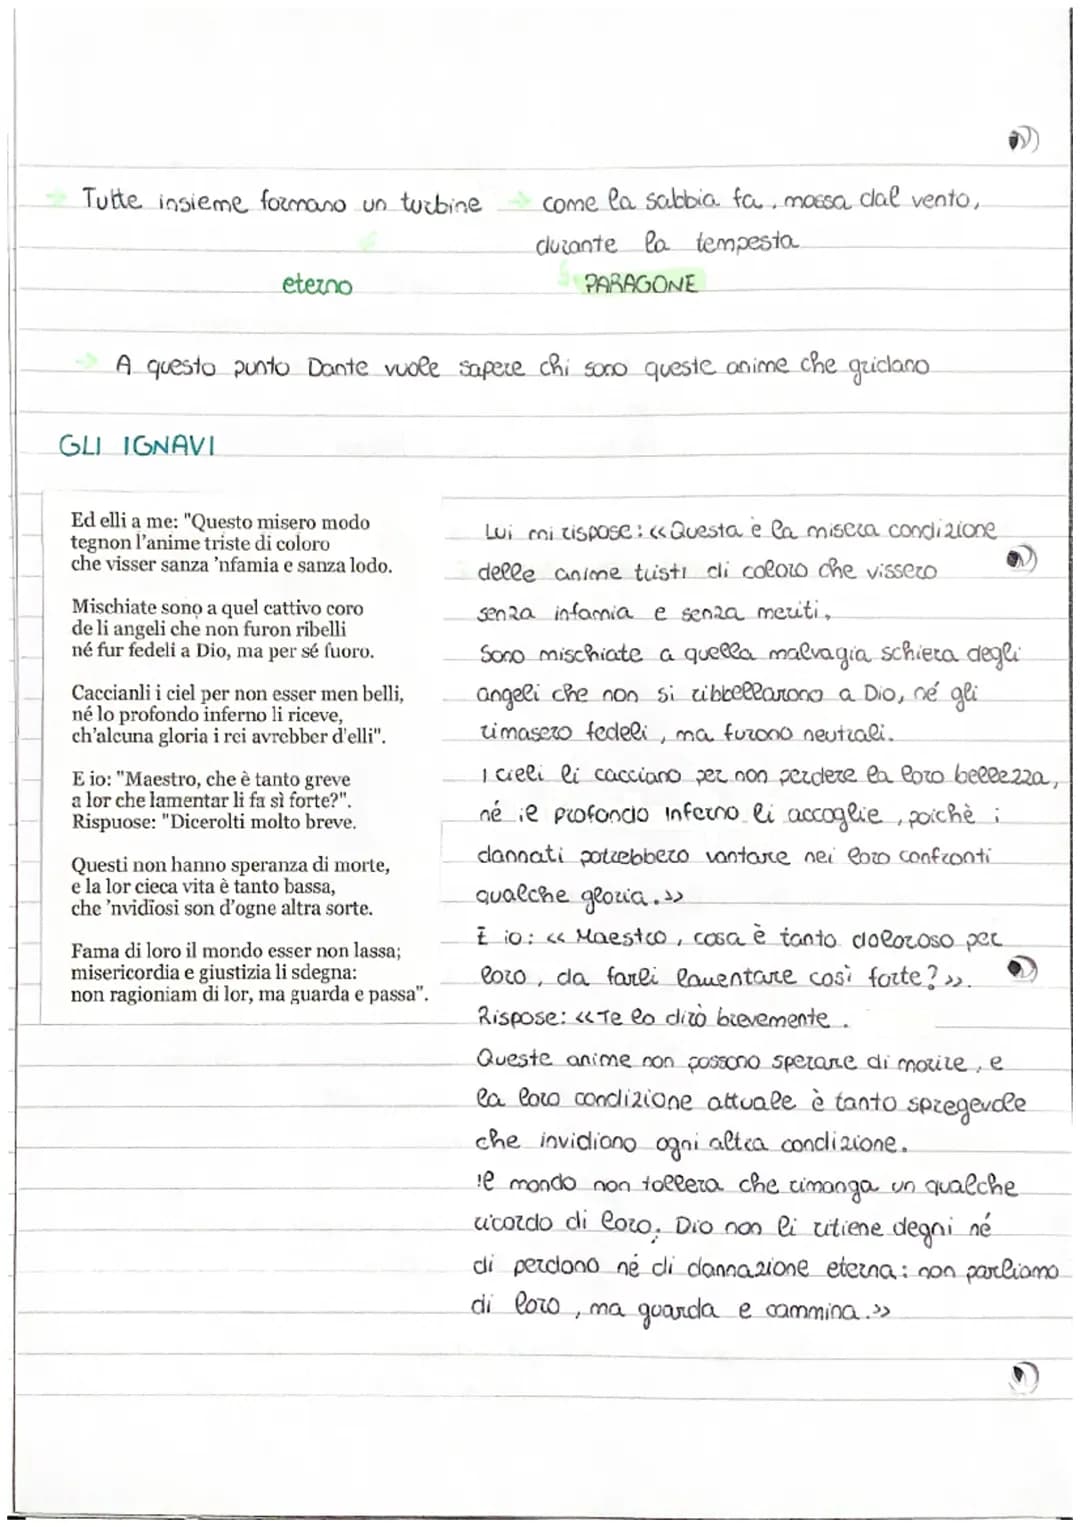 Tutte insieme formano un turbine → come la sabbia fa, mossa dal vento,
durante la tempesta
eterno PARAGONE
→ A questo punto Dante vuole sapere chi sono queste anime che gridano
GLI IGNAVI
Ed elli a me: "Questo misero modo
tegnon l'anime triste di coloro
che visser sanza 'nfamia e sanza lodo.
Mischiate sono a quel cattivo coro
de li angeli che non furon ribelli
né fur fedeli a Dio, ma per sé fuoro.
Caccianli i ciel per non esser men belli,
né lo profondo inferno li riceve,
ch'alcuna gloria i rei avrebber d'elli".
E io: "Maestro, che è tanto greve
a lor che lamentar li fa sì forte?".
Rispuose: "Dicerolti molto breve.
Questi non hanno speranza di morte,
e la lor cieca vita è tanto bassa,
che 'nvidïosi son d'ogne altra sorte.
Fama di loro il mondo esser non lassa;
misericordia e giustizia li sdegna:
non ragioniam di lor, ma guarda e passa".
Lui mi rispose: «Questa è la misera condizione
delle anime tristi di coloro che vissero
senza infamia e senza meriti.
Sono mischiate a quella malvagia schiera degli
angeli che non si ribbellarono a Dio, né gli
rimasero fedeli, ma furono neutrali.
I cieli li cacciano per non perdere la loro bellezza,
né il profondo inferno li accoglie, poichè i
dannati potrebbero vantare nei loro confronti
qualche gloria.»
E io: «Maestro, cosa è tanto doloroso per
loro, da farli lamentare così forte?».
Rispose: «Te lo dirò brevemente.
Queste anime non possono sperare di morire, e
la loro condizione attuale è tanto spregevole
che invidiano ogni altra condizione.
il mondo non tollera che rimanga un qualche
ricordo di loro; Dio non li ritiene degni né
di perdono né di dannazione eterna: non parliamo
di loro, ma guarda e cammina.»